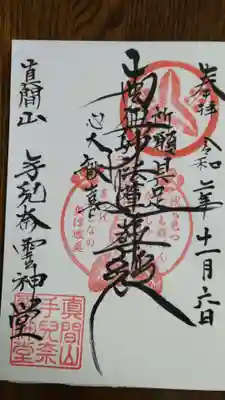 奉拝 令和二年十一月六日
所願具足
南無妙法蓮華経
心大歓喜
真間山 手兒奈霊神堂
真間山
手兒奈
霊神堂